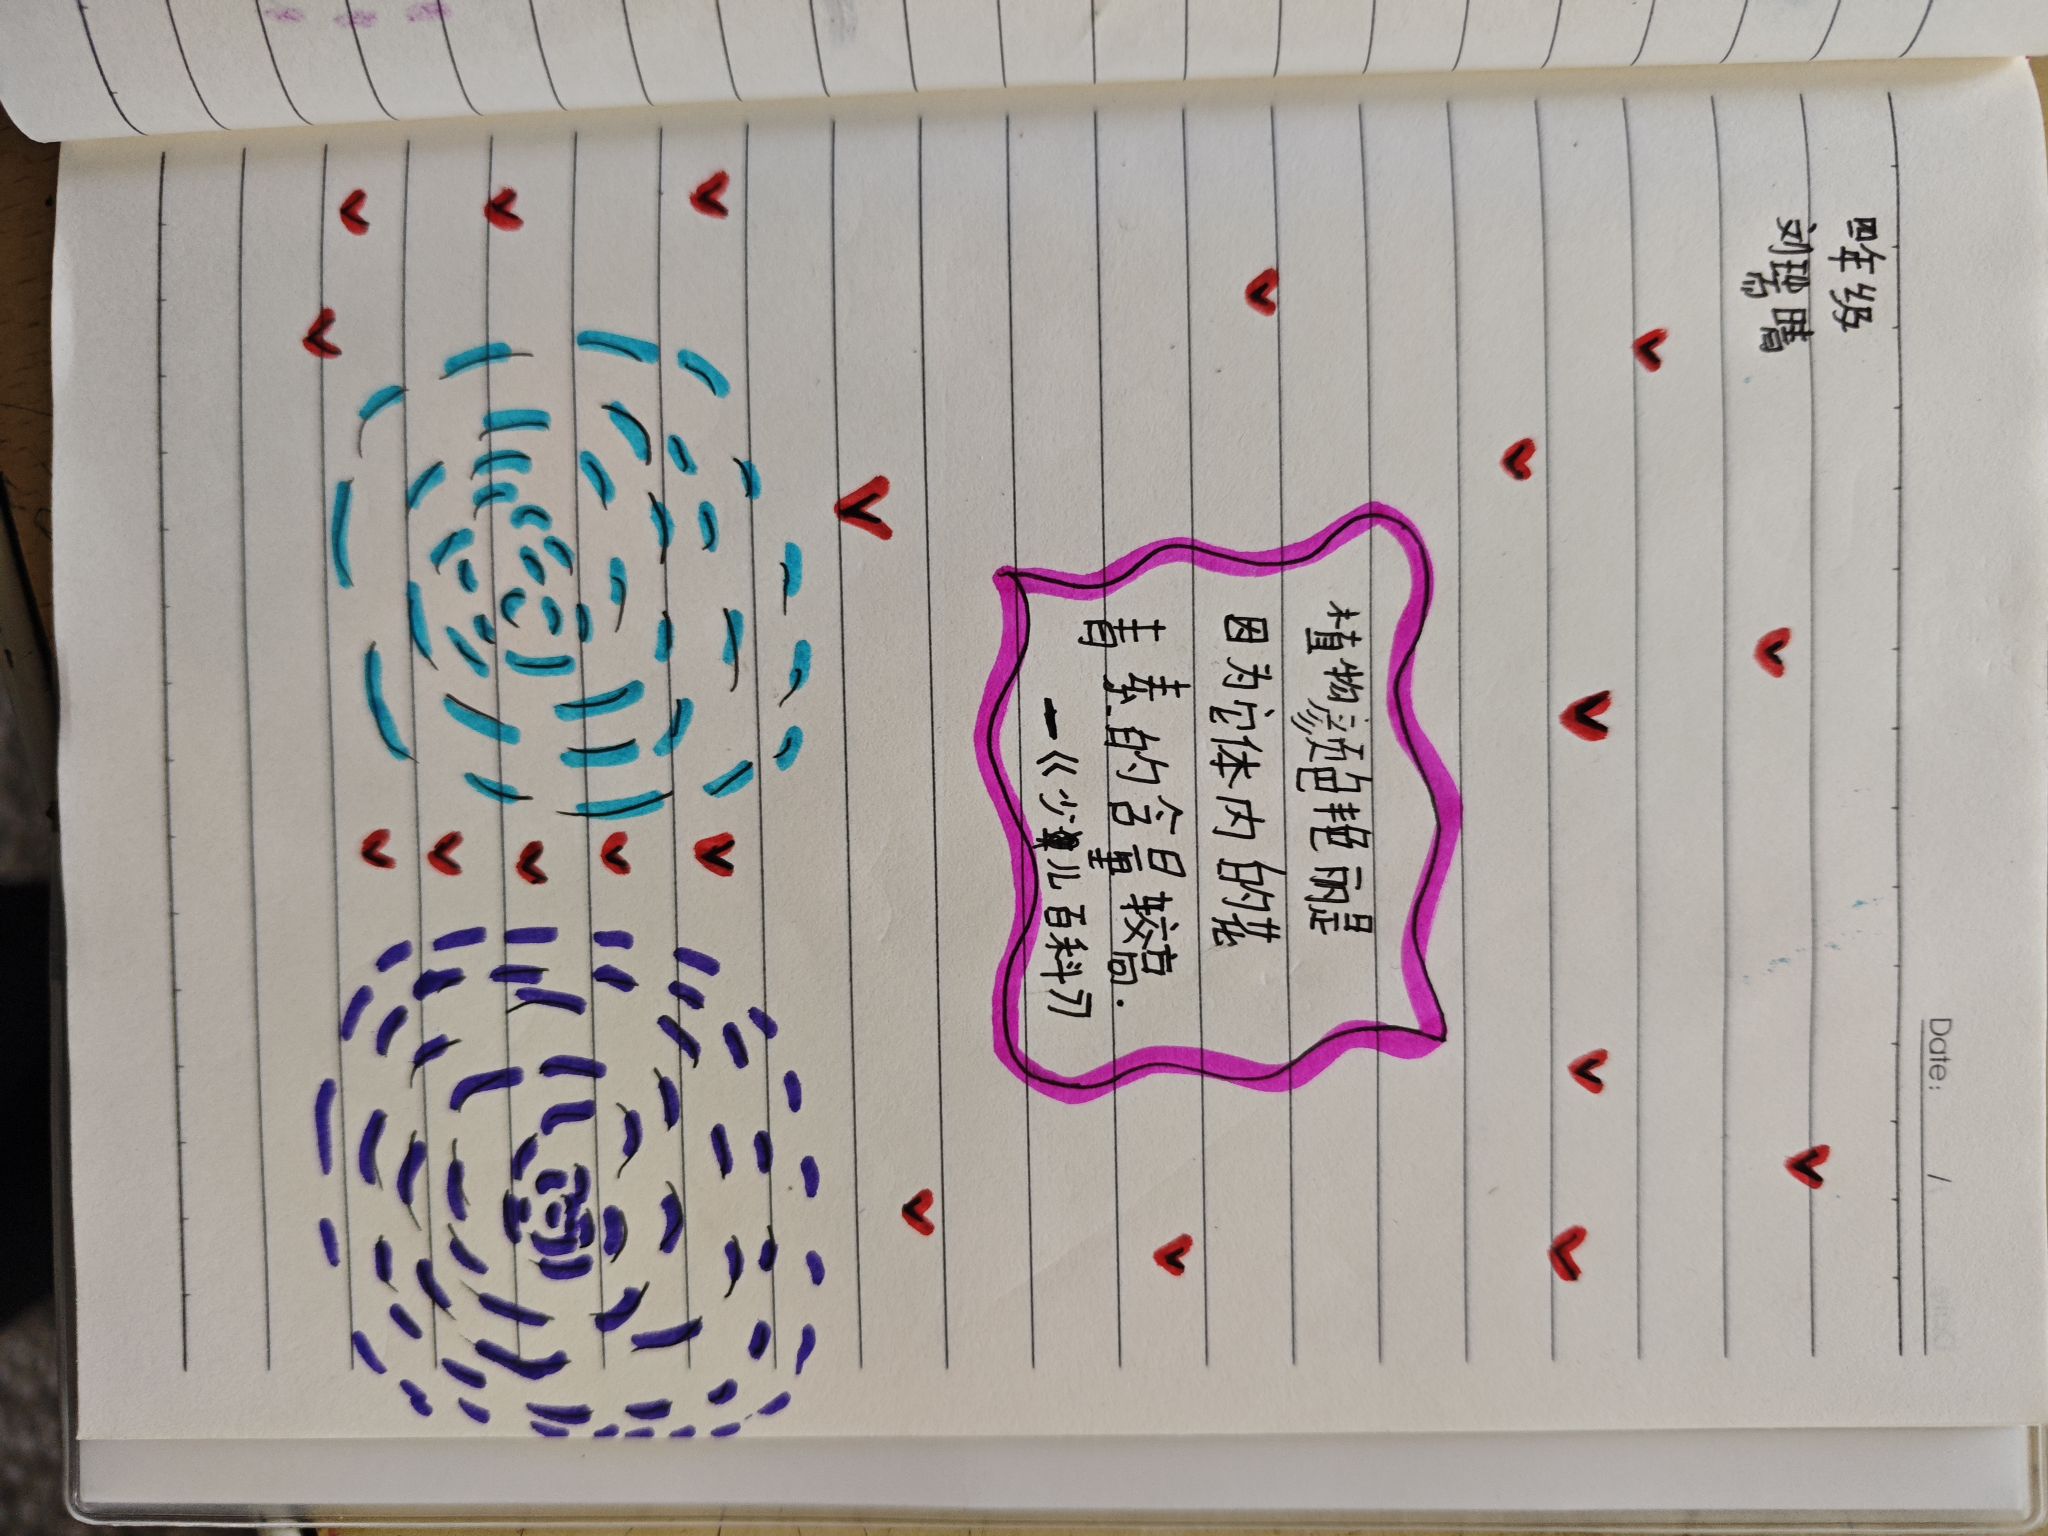 Date: /
四年级
刘瑶晴
植物颜色艳丽是
因为它体内的花
青素的含量较高.
—《少儿百科》